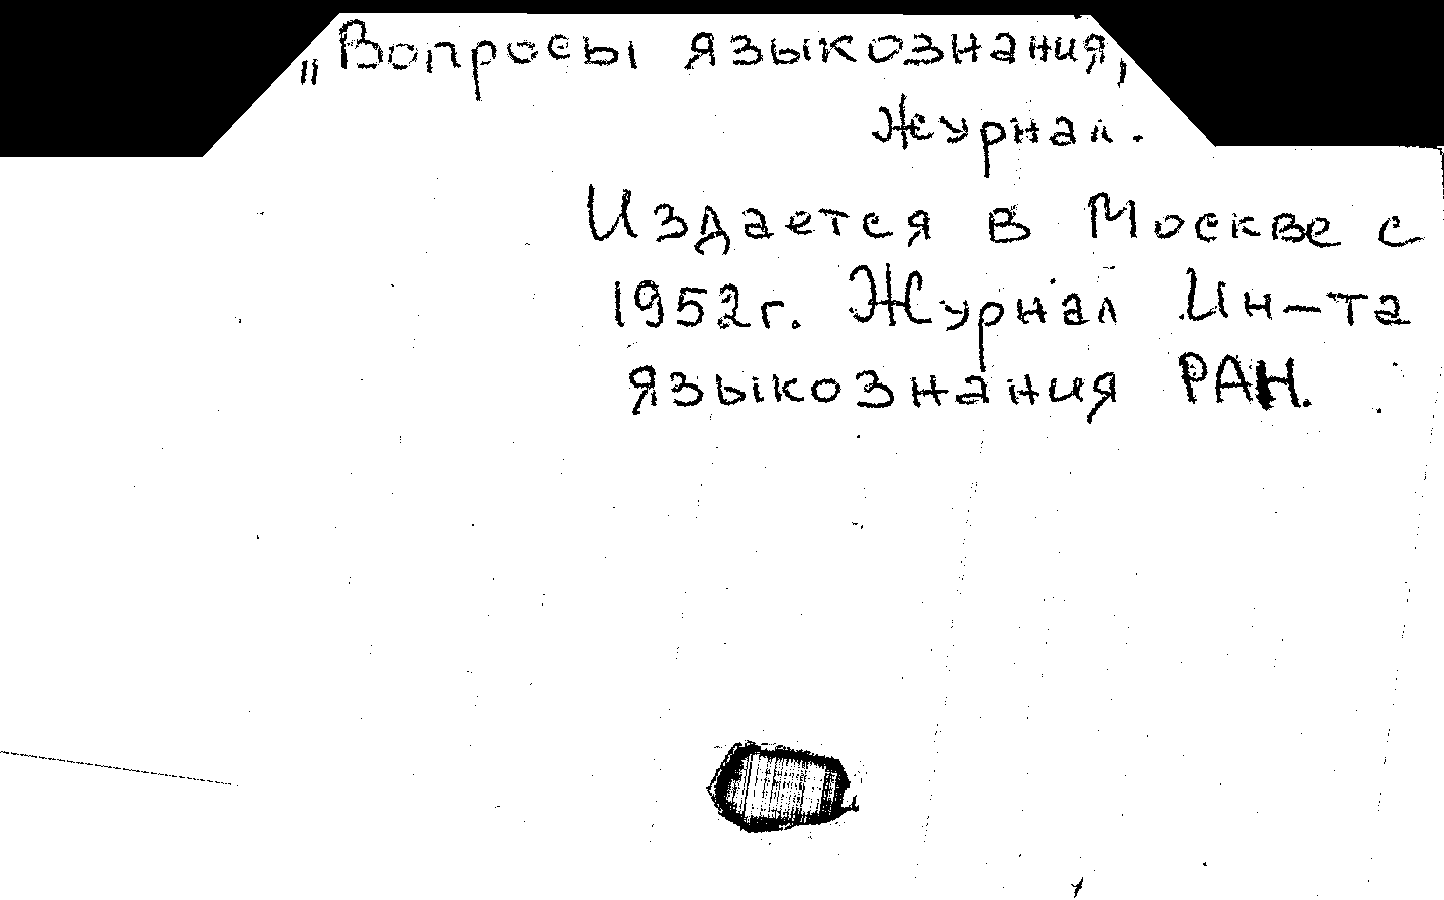 „Вопросы языкознания,
Журнал.
Издается в Москве с
1952г. Журнал Ин-та
языкознания РАН.